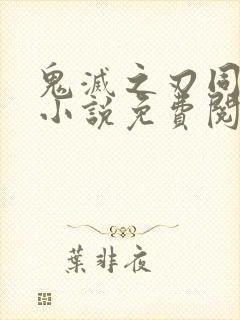 鬼滅之刃同
小說免費閱
葉非夜